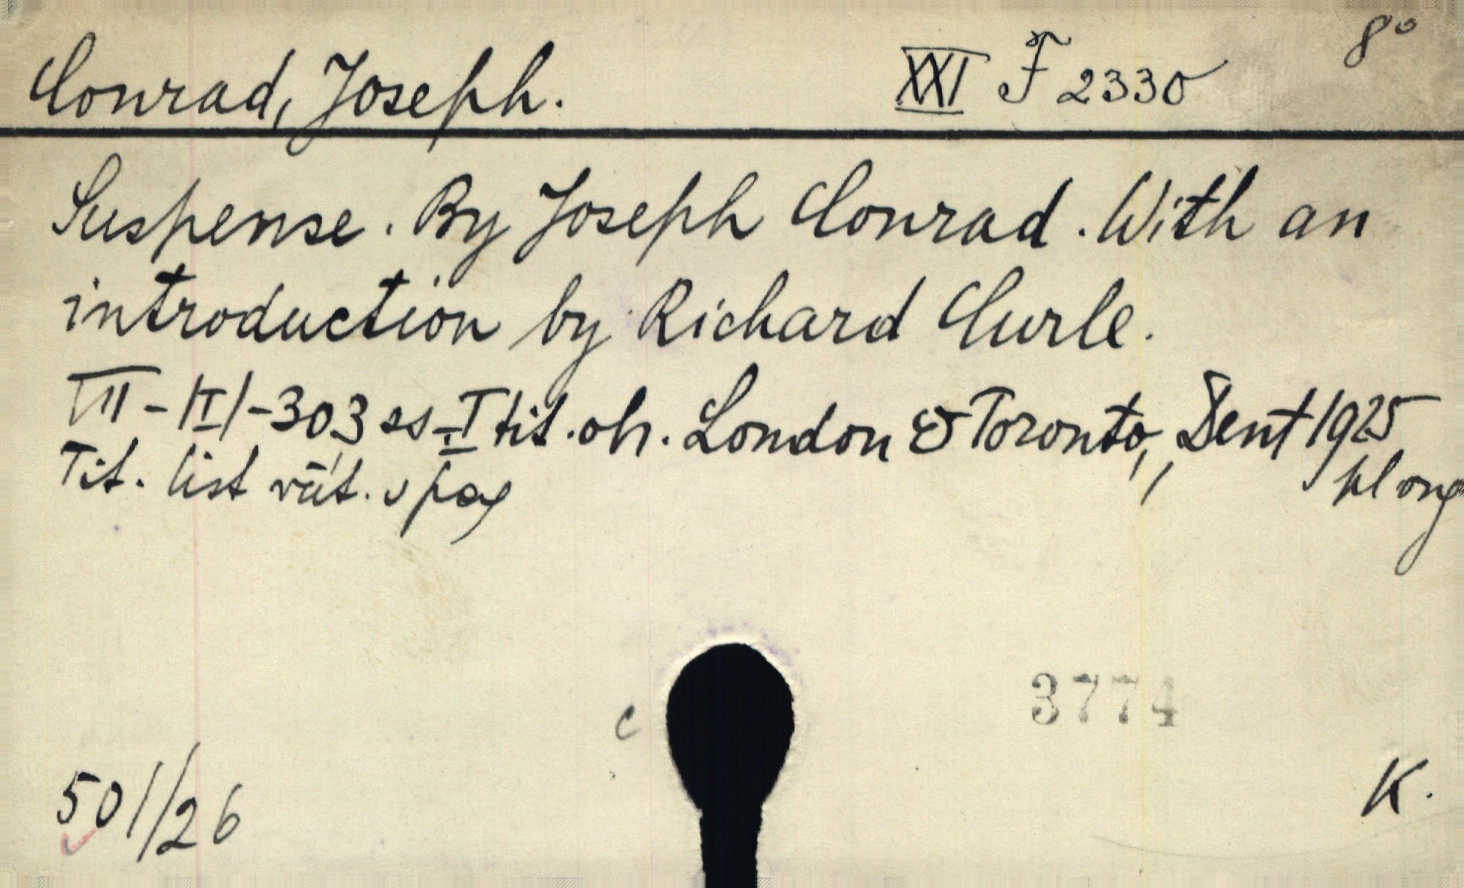 8°
Conrad, Joseph. XXI F 2330
Suspense. By Joseph Conrad. With an
introduction by Richard Curle.
VII-|I|-303 ss-I tit. ob. London & Toronto, Dent 1925
Tit. list rüt. v pag
c
3774
501/26
K.